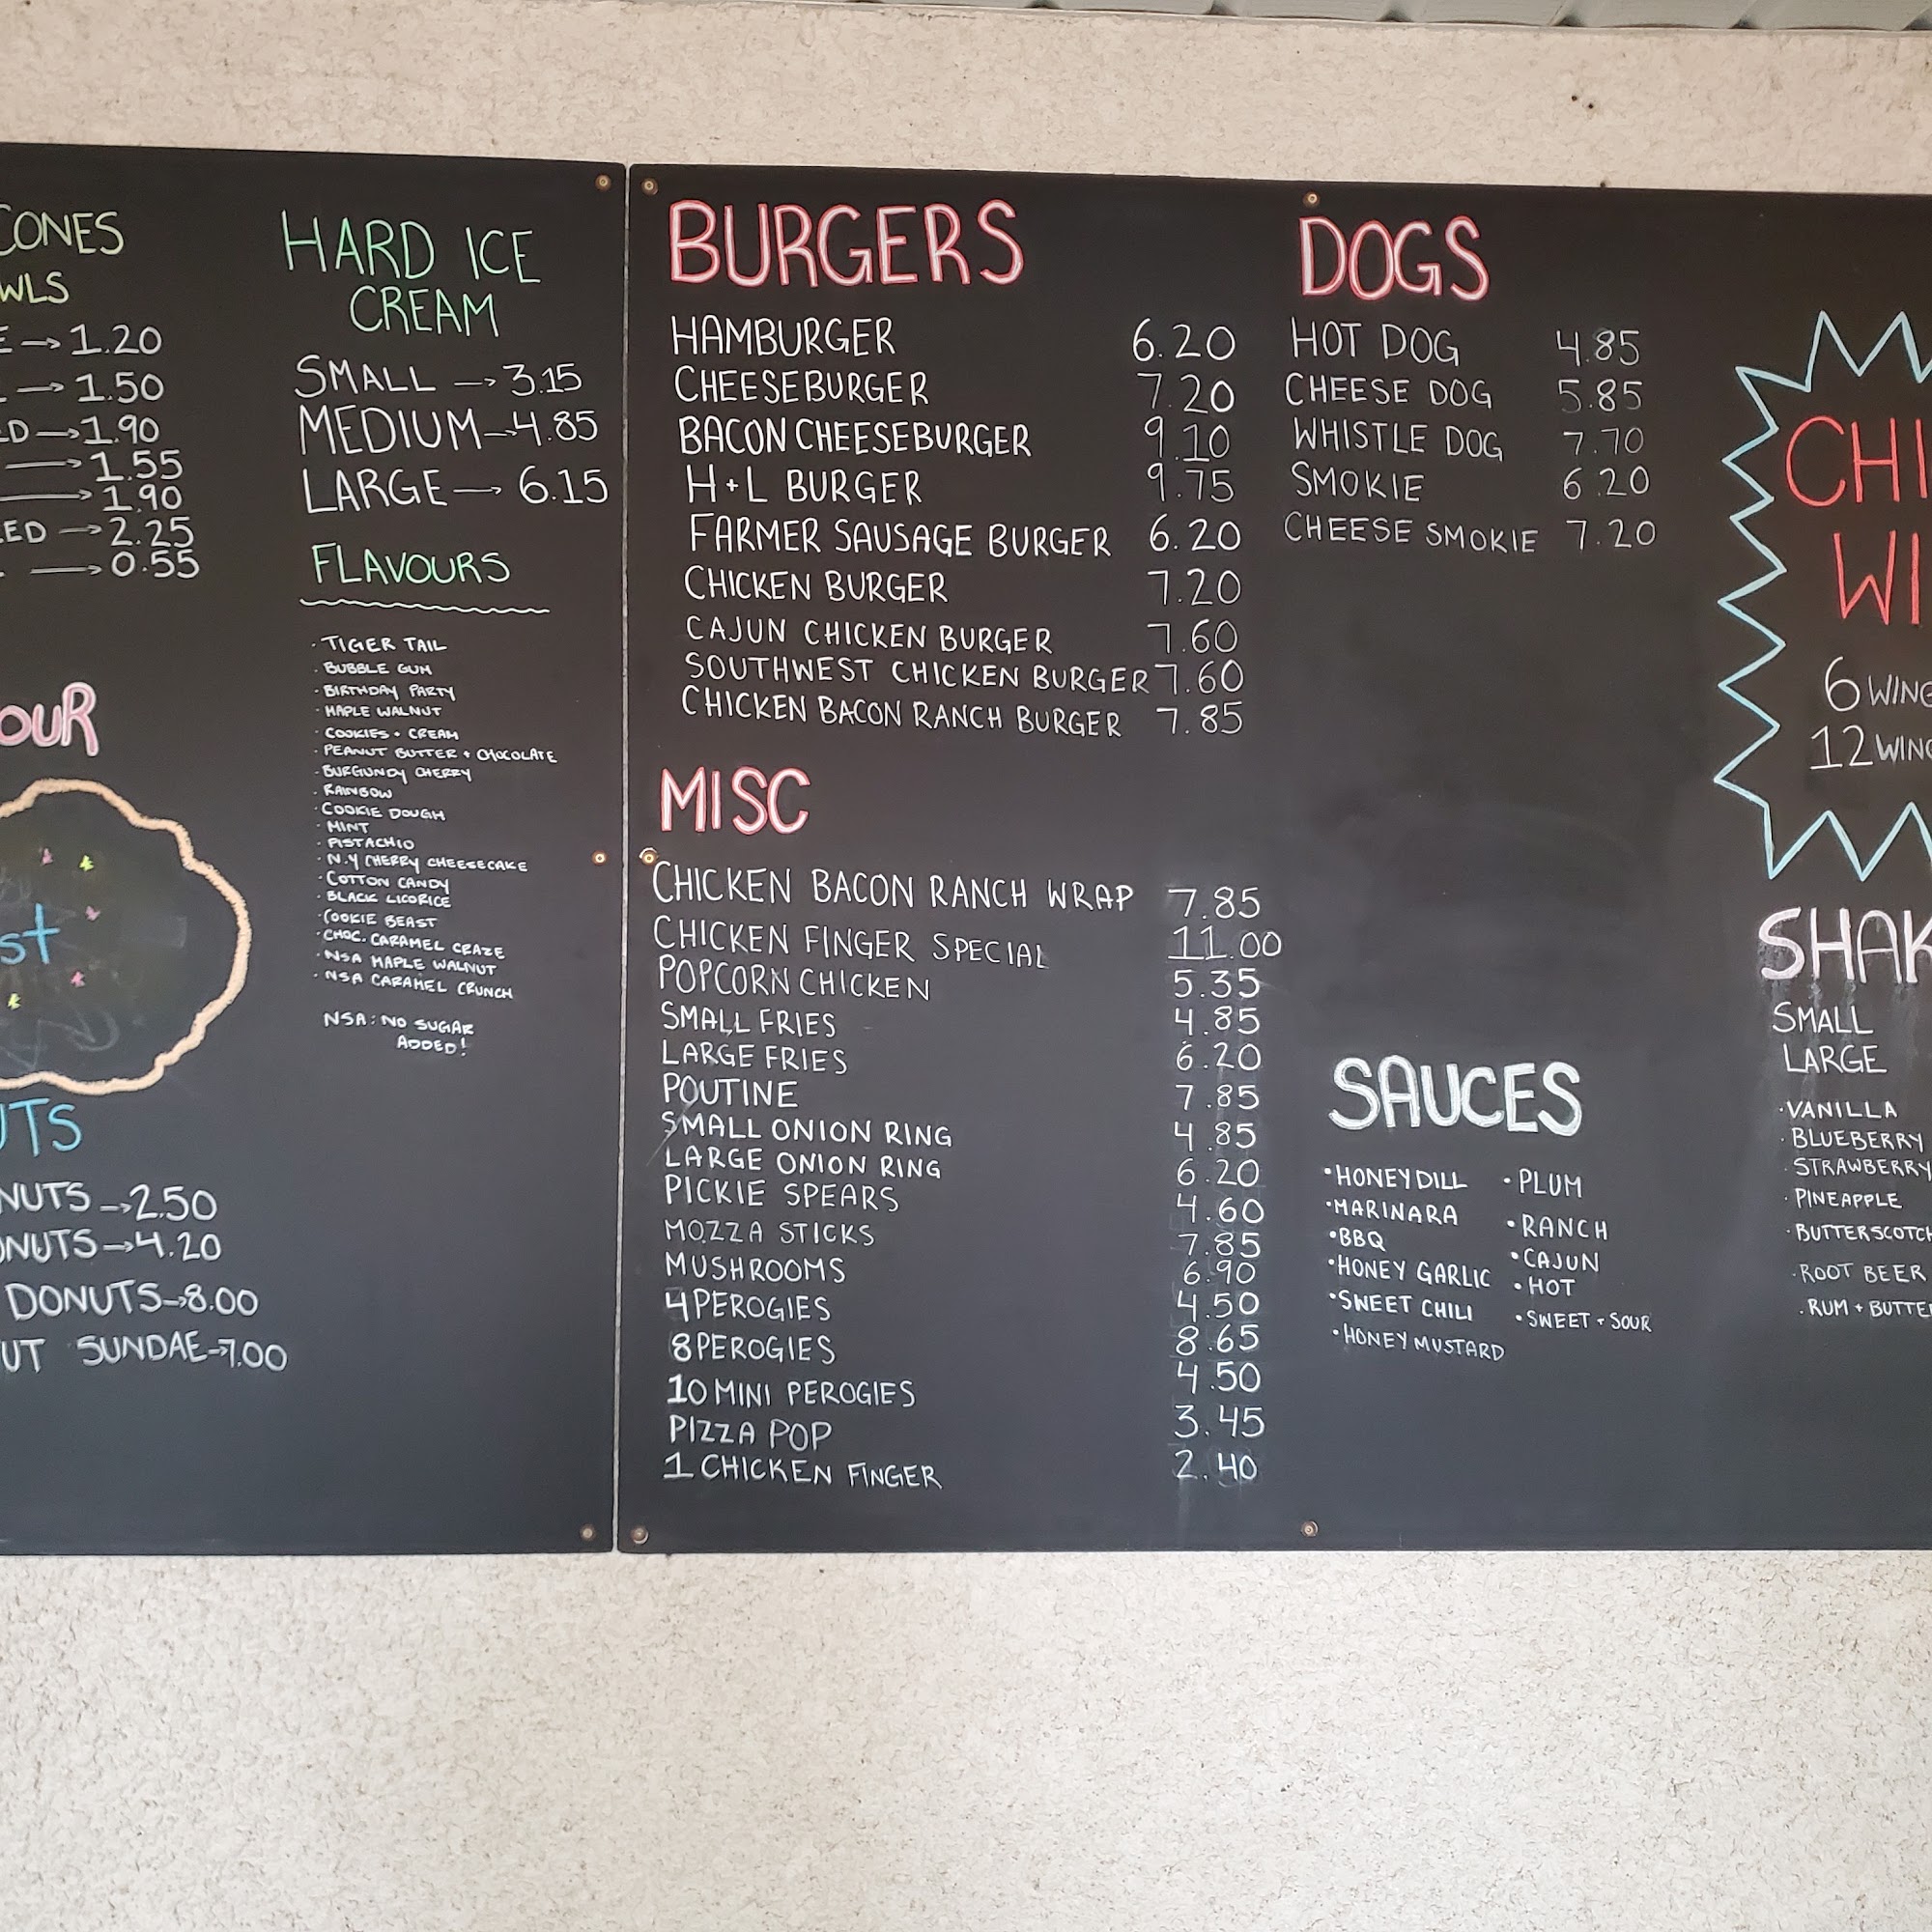 CONES
HARD ICE
CREAM
1.20
1.50
1.90
1.55
1.90
2.25
0.55
SMALL → 3.15
MEDIUM → 4.85
LARGE → 6.15
FLAVOURS
· TIGER TAIL
· BUBBLE GUM
· BIRTHDAY PARTY
· MAPLE WALNUT
· COOKIES + CREAM
· PEANUT BUTTER + CHOCOLATE
· BURGUNDY CHERRY
· RAINBOW
· COOKIE DOUGH
· MINT
· PISTACHIO
· N.Y CHERRY CHEESECAKE
· COTTON CANDY
· BLACK LICORICE
· COOKIE BEAST
· CHOC. CARAMEL CRAZE
· NSA MAPLE WALNUT
· NSA CARAMEL CRUNCH
NSA: NO SUGAR
ADDED!
→ 2.50
→ 4.20
DONUTS → 8.00
SUNDAE → 7.00
BURGERS
HAMBURGER 6.20
CHEESEBURGER 7.20
BACON CHEESEBURGER 9.10
H+L BURGER 9.75
FARMER SAUSAGE BURGER 6.20
CHICKEN BURGER 7.20
CAJUN CHICKEN BURGER 7.60
SOUTHWEST CHICKEN BURGER 7.60
CHICKEN BACON RANCH BURGER 7.85
MISC
CHICKEN BACON RANCH WRAP 7.85
CHICKEN FINGER SPECIAL 11.00
POPCORN CHICKEN 5.35
SMALL FRIES 4.85
LARGE FRIES 6.20
POUTINE 7.85
SMALL ONION RING 4.85
LARGE ONION RING 6.20
PICKIE SPEARS 4.60
MOZZA STICKS 7.85
MUSHROOMS 6.90
4 PEROGIES 4.50
8 PEROGIES 8.65
10 MINI PEROGIES 4.50
PIZZA POP 3.45
1 CHICKEN FINGER 2.40
DOGS
HOT DOG 4.85
CHEESE DOG 5.85
WHISTLE DOG 7.70
SMOKIE 6.20
CHEESE SMOKIE 7.20
SAUCES
• HONEY DILL
• MARINARA
• BBQ
• HONEY GARLIC
• SWEET CHILI
• HONEY MUSTARD
• PLUM
• RANCH
• CAJUN
• HOT
• SWEET + SOUR
6
12
SMALL
LARGE
· VANILLA
· BLUEBERRY
· STRAWBERRY
· PINEAPPLE
· BUTTERSCOTCH
· ROOT BEER
· RUM +